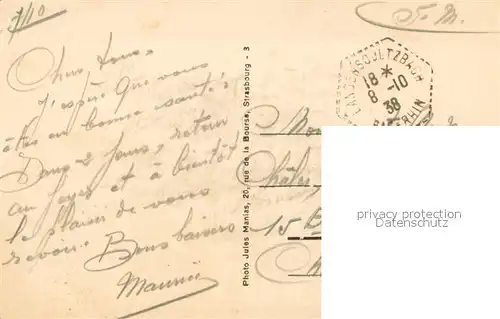 7/10
F. M.
Chers tous.
J'espère que vous
êtes en bonne santé.
Dans 2 jours, retour
au foyer et à bientôt
le plaisir de vous
revoir. Bons baisers
Maurice
Photo Jules Manias, 20, rue de la Bourse, Strasbourg - 3
18 *
8 -10
38
RHIN
15
privacy protection
Datenschutz